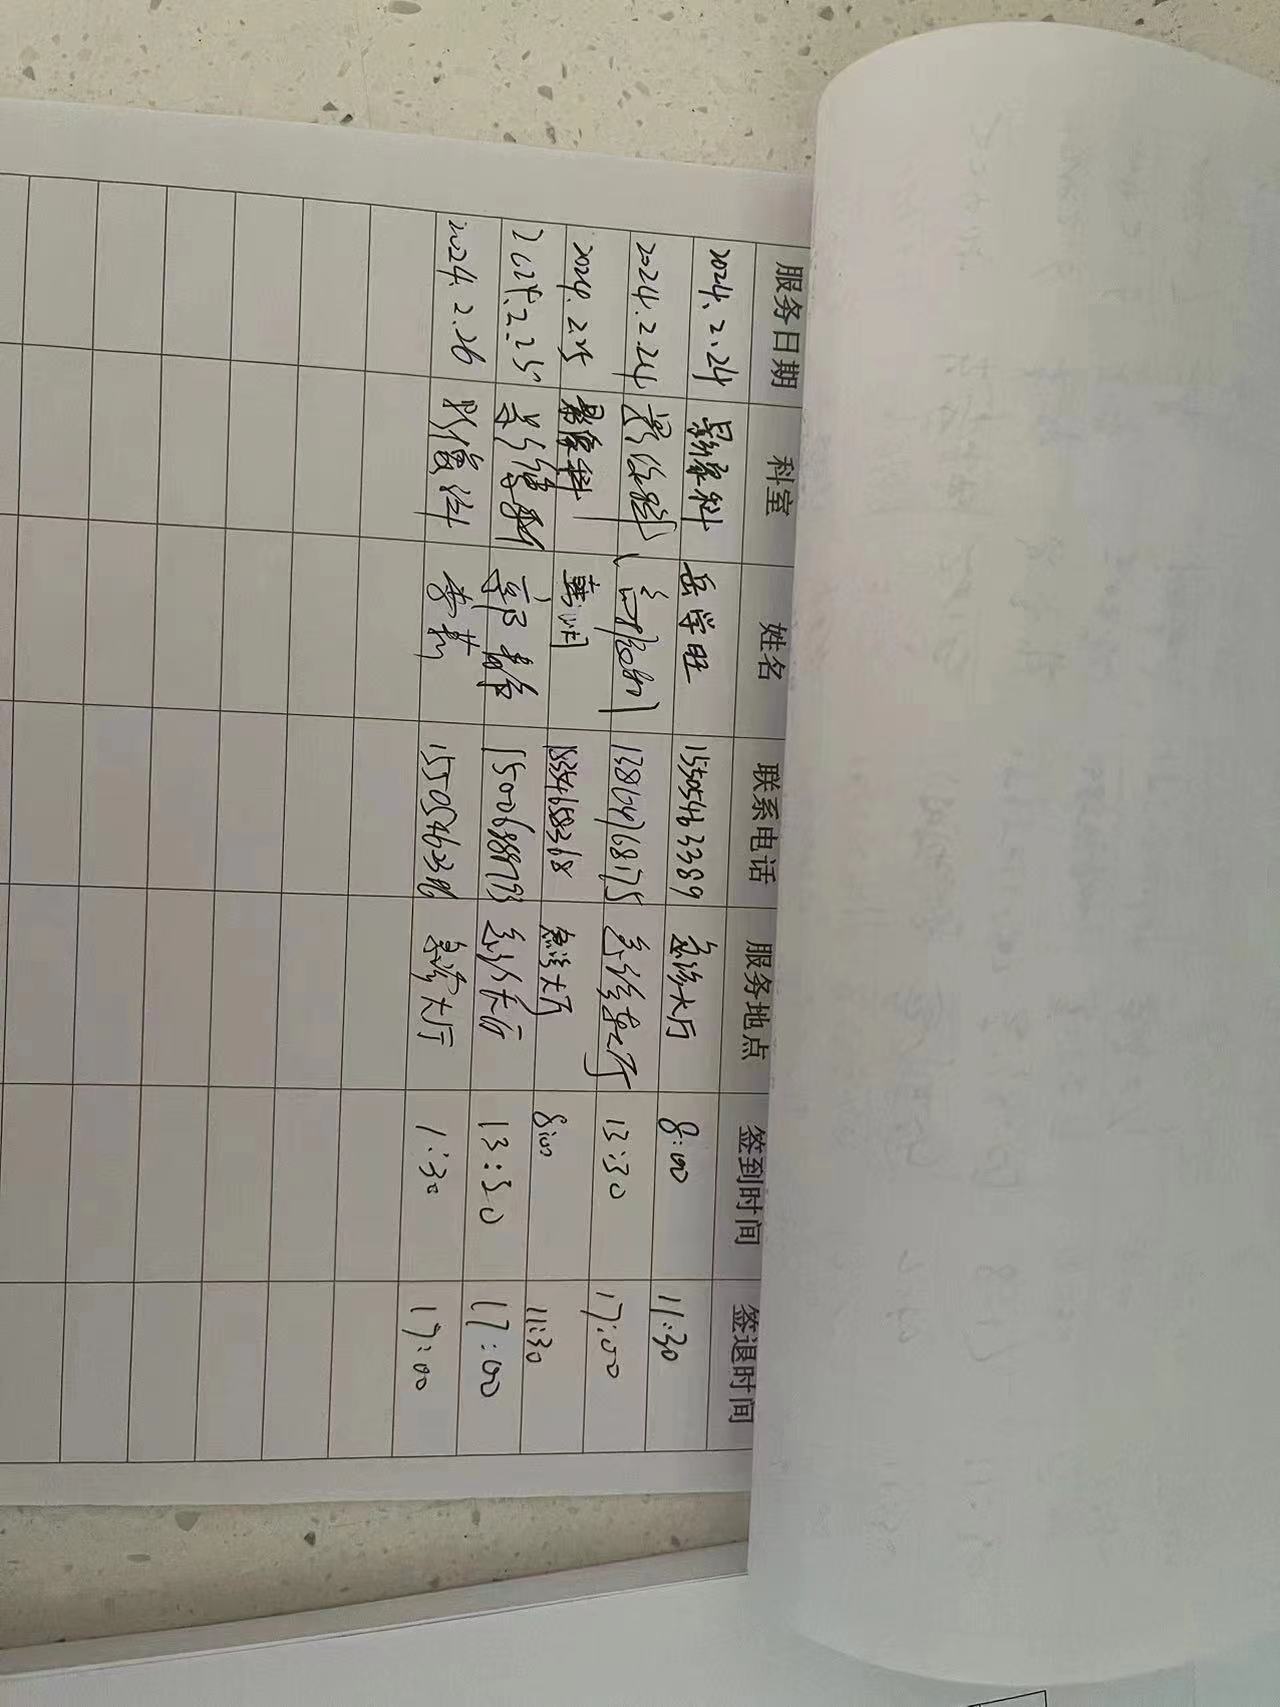 服务日期 科室 姓名 联系电话 服务地点 签到时间 签退时间
2024.2.24 影像科 岳学旺 15505463389 急诊大厅 8:00 11:30
2024.2.24 影像科 13864768175 急诊大厅 13:30 17:00
2024.2.25 影像科 韩 18354658368 急诊大厅 8:00 11:30
2024.2.25 影像科 郭 急诊大厅 13:30 17:00
2024.2.26 影像科 李 急诊大厅 1:30 17:00